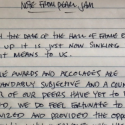 NOTE FROM PEARL JAM
H THE DATE OF THE HALL OF FAME
UP IT IS JUST NOW SINKING
IT MEANS TO US.
LE AWARDS AND ACCOLADES ARE
TANDABLY SUBJECTIVE AND A COUN
OF OUR PEERS HAVE YET TO
TO, WE DO FEEL FORTUNATE TO
NIZED AND PROVIDED THE OPPO